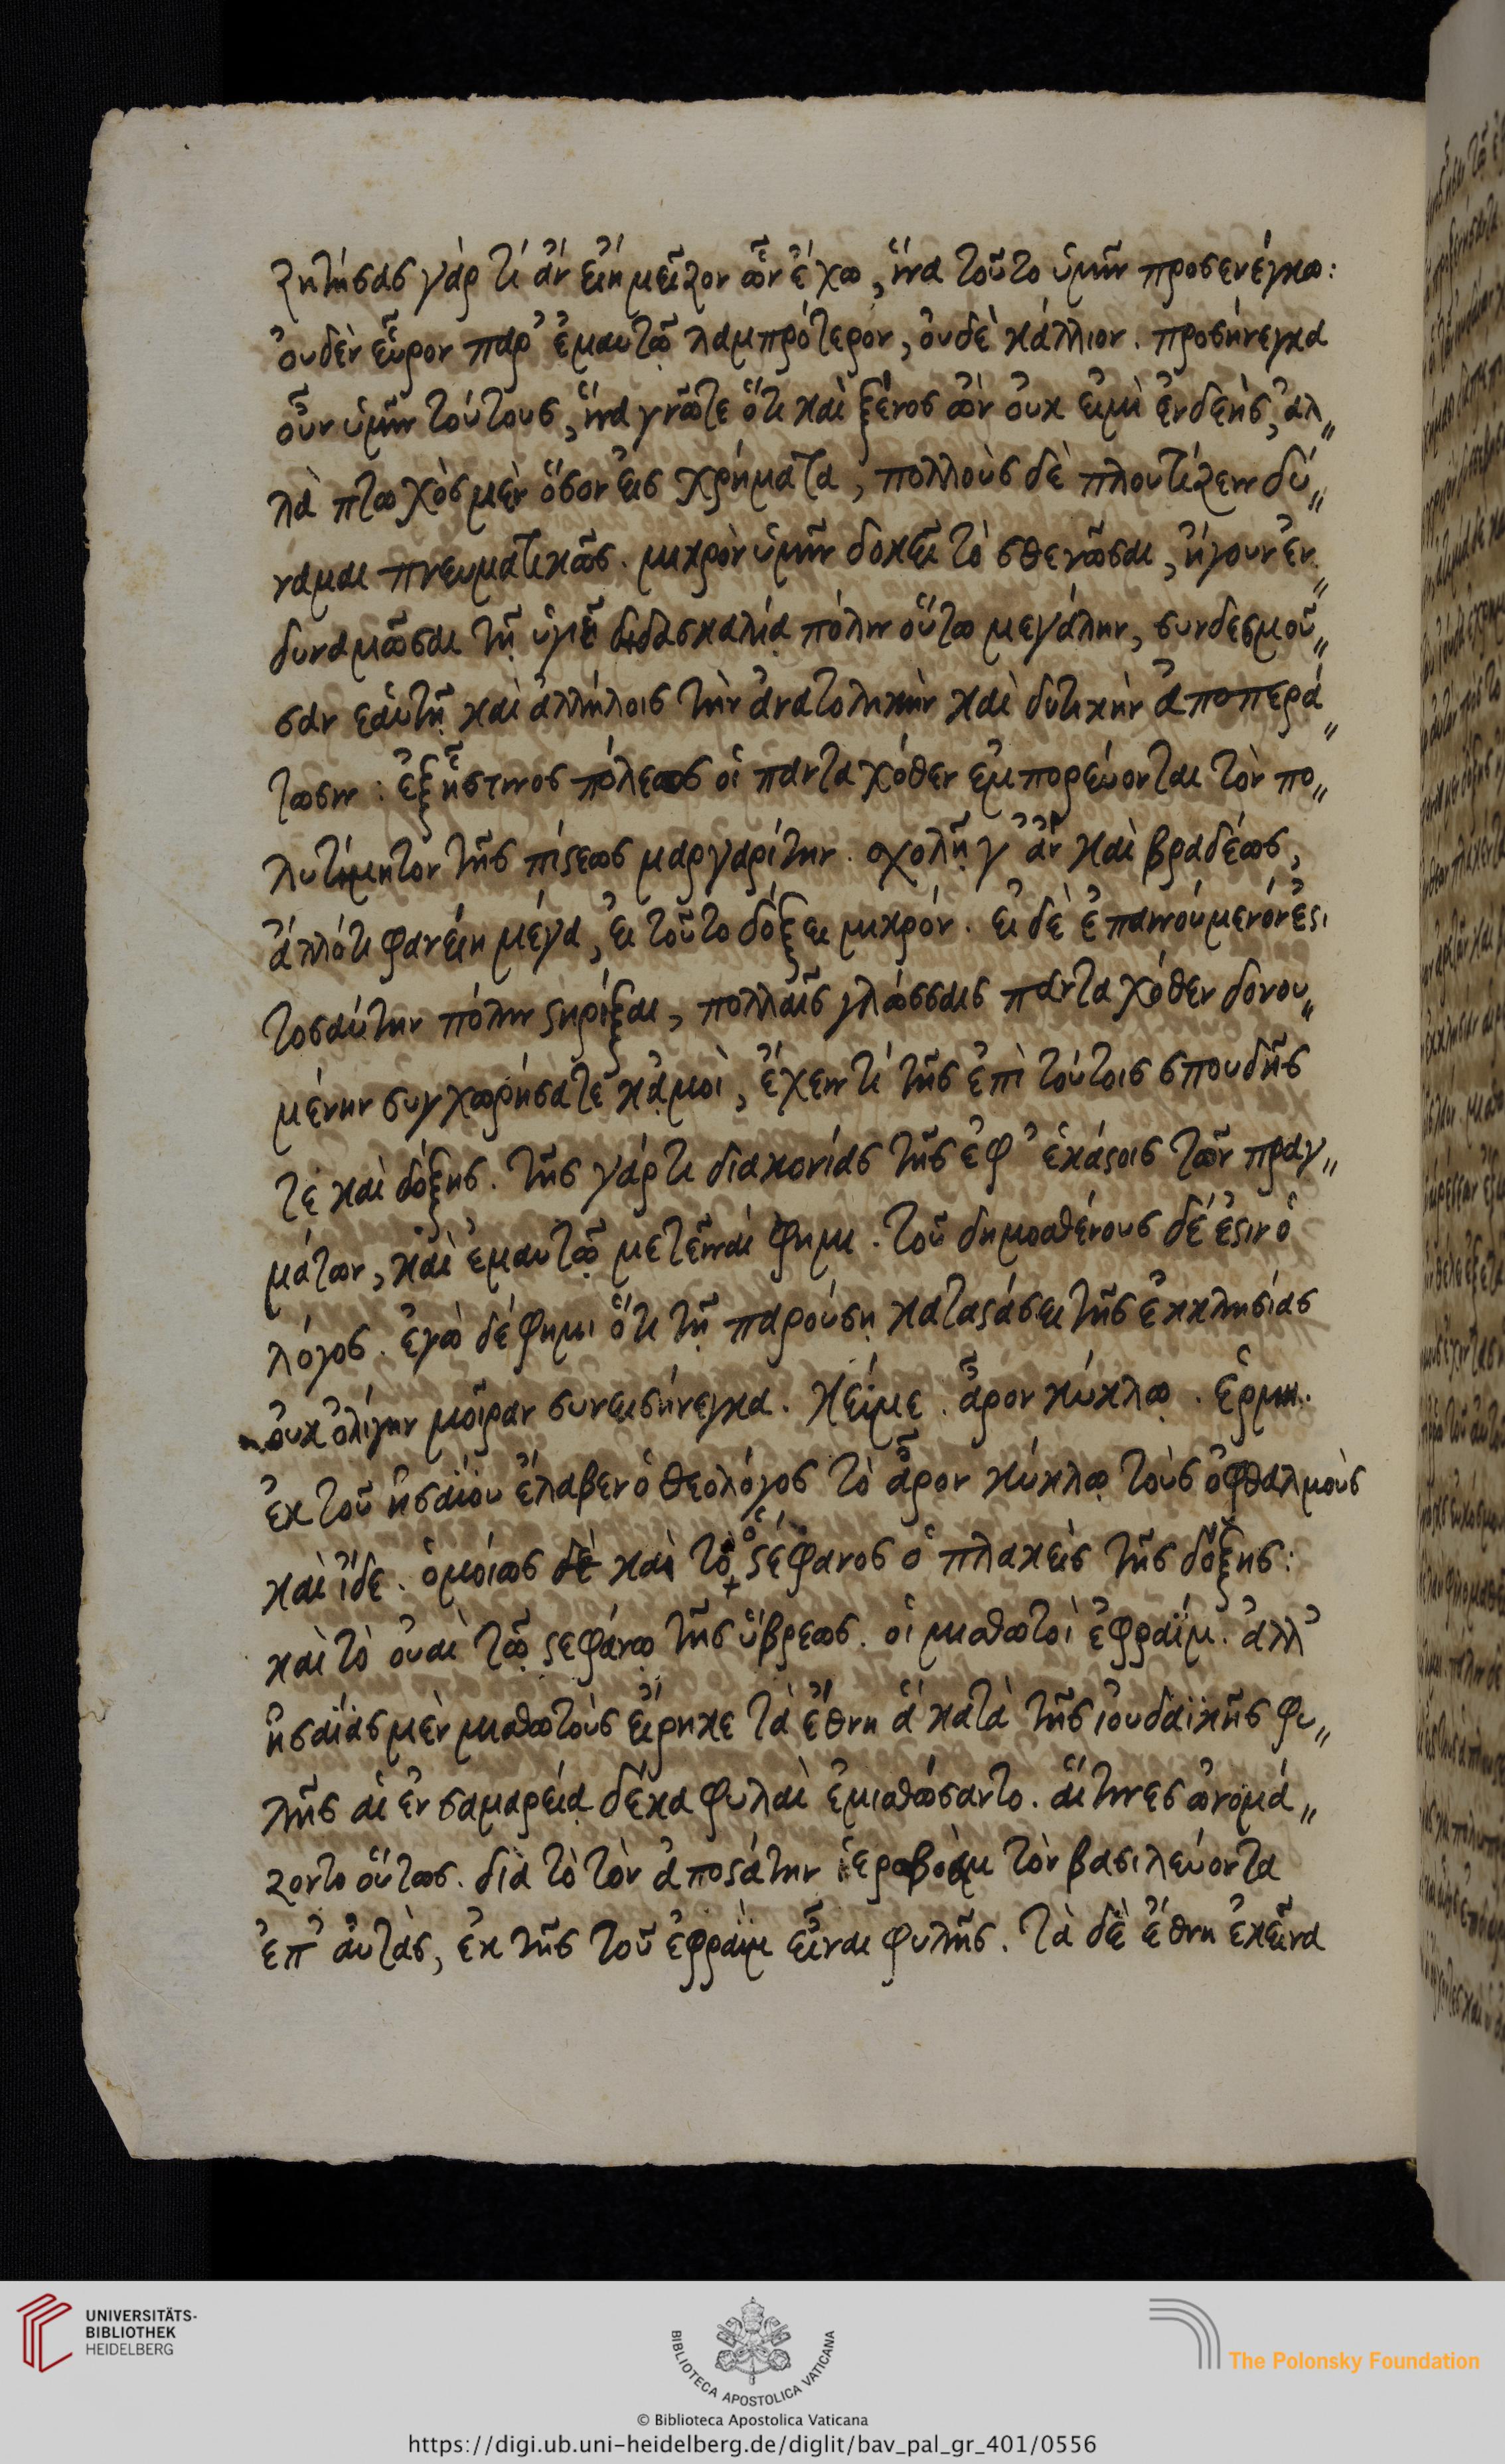 ζητήσας γάρ τί ἂν εἴη μεῖζον ὧν ἔχω, ἵνα τοῦτο ὑμῖν προσενέγκω:
ὀυδὲν εὗρον παρ' ἐμαυτῶ λαμπρότερον, ὀυδὲ κάλλιον. προσήνεγκα
οὖν ὑμῖν τούτους, ἵνα γνῶτε ὅτι καὶ ξένος ὢν ὀυκ εἰμὶ ἐνδεὴς, ἀλ„
λὰ πτωχὸς μὲν ὅσον εἰς χρήματα, πολλοὺς δὲ πλουτίζειν δύ„
ναμαι πνευματικῶς. μικρὸν ὑμῖν δοκεῖ τὸ σθενῶσαι, ἤγουν ἐν„
δυναμῶσαι τῆ ὑγιεῖ διδασκαλία πόλιν οὕτω μεγάλην, συνδεσμοῦ„
σαν ἑαυτῆ καὶ ἀλλήλοις τὴν ἀνατολικὴν καὶ δυτικὴν ἀποπερά„
τωσιν: ἐξ ἧστινος πόλεως οἱ πανταχόθεν ἐμπορεύονται τὸν πο„
λυτίμητον τῆς πίστεως μαργαρίτην. σχολῆ γ' ἂν καὶ βραδέως,
ἄλλό τι φανείη μέγα, εἰ τοῦτο δόξει μικρόν. εἰ δὲ ἐπαινούμενόν ἐστι
τοσαύτην πόλιν στηρίξαι, πολλαῖς γλώσσαις πανταχόθεν δονου„
μένην συγχωρήσατε κἀμοὶ, ἔχειν τί τῆς ἐπὶ τούτοις σπουδῆς
τὲ καὶ δόξης. τῆς γάρ τι διακονίας τῆς ἐφ' ἑκάστοις τῶν πραγ„
μάτων, καὶ ἐμαυτῶ μετεῖναί φημι. τοῦ δημοσθένους δέ ἐστιν ὁ
λόγος. ἐγὼ δέ φημι ὅτι τῆ παρούση καταστάσει τῆς ἐκκλησίας
ὀυκ ὀλίγην μοῖραν συνεισήνεγκα. κείμε. ἆρον κύκλω. ἑρμη.
ἐκ τοῦ ἡσαΐου ἔλαβεν ὁ θεολόγος τὸ ἆρον κύκλω τοὺς ὀφθαλμοὺς
καὶ ἴδε. ὁμοίως δὲ καὶ τὸ ὁ στέφανος ὁ πλακεὶς τῆς δόξης:
καὶ τὸ ὀυαὶ τῶ στεφάνω τῆς ὕβρεως. οἱ μισθωτοὶ ἐφραΐμ. ἀλλ'
ἡσαΐας μὲν μισθωτοὺς εἴρηκε τὰ ἔθνη ἃ κατὰ τῆς ἰουδαϊκῆς φυ„
λῆς αἱ ἐν σαμαρεία δέκα φυλαὶ ἐμισθώσαντο. αἵτινες ὠνομά„
ζοντο οὕτως. διὰ τὸ τὸν ἀποστάτην ἱεροβοὰμ τὸν βασιλεύοντα
ἐπ' ἀυτὰς, ἐκ τῆς τοῦ ἐφραὶμ εἶναι φυλῆς. τὰ δὲ ἔθνη ἐκεῖνα
UNIVERSITÄTS-
BIBLIOTHEK
HEIDELBERG
BIBLIOTECA APOSTOLICA VATICANA
The Polonsky Foundation
© Biblioteca Apostolica Vaticana
https://digi.ub.uni-heidelberg.de/diglit/bav_pal_gr_401/0556